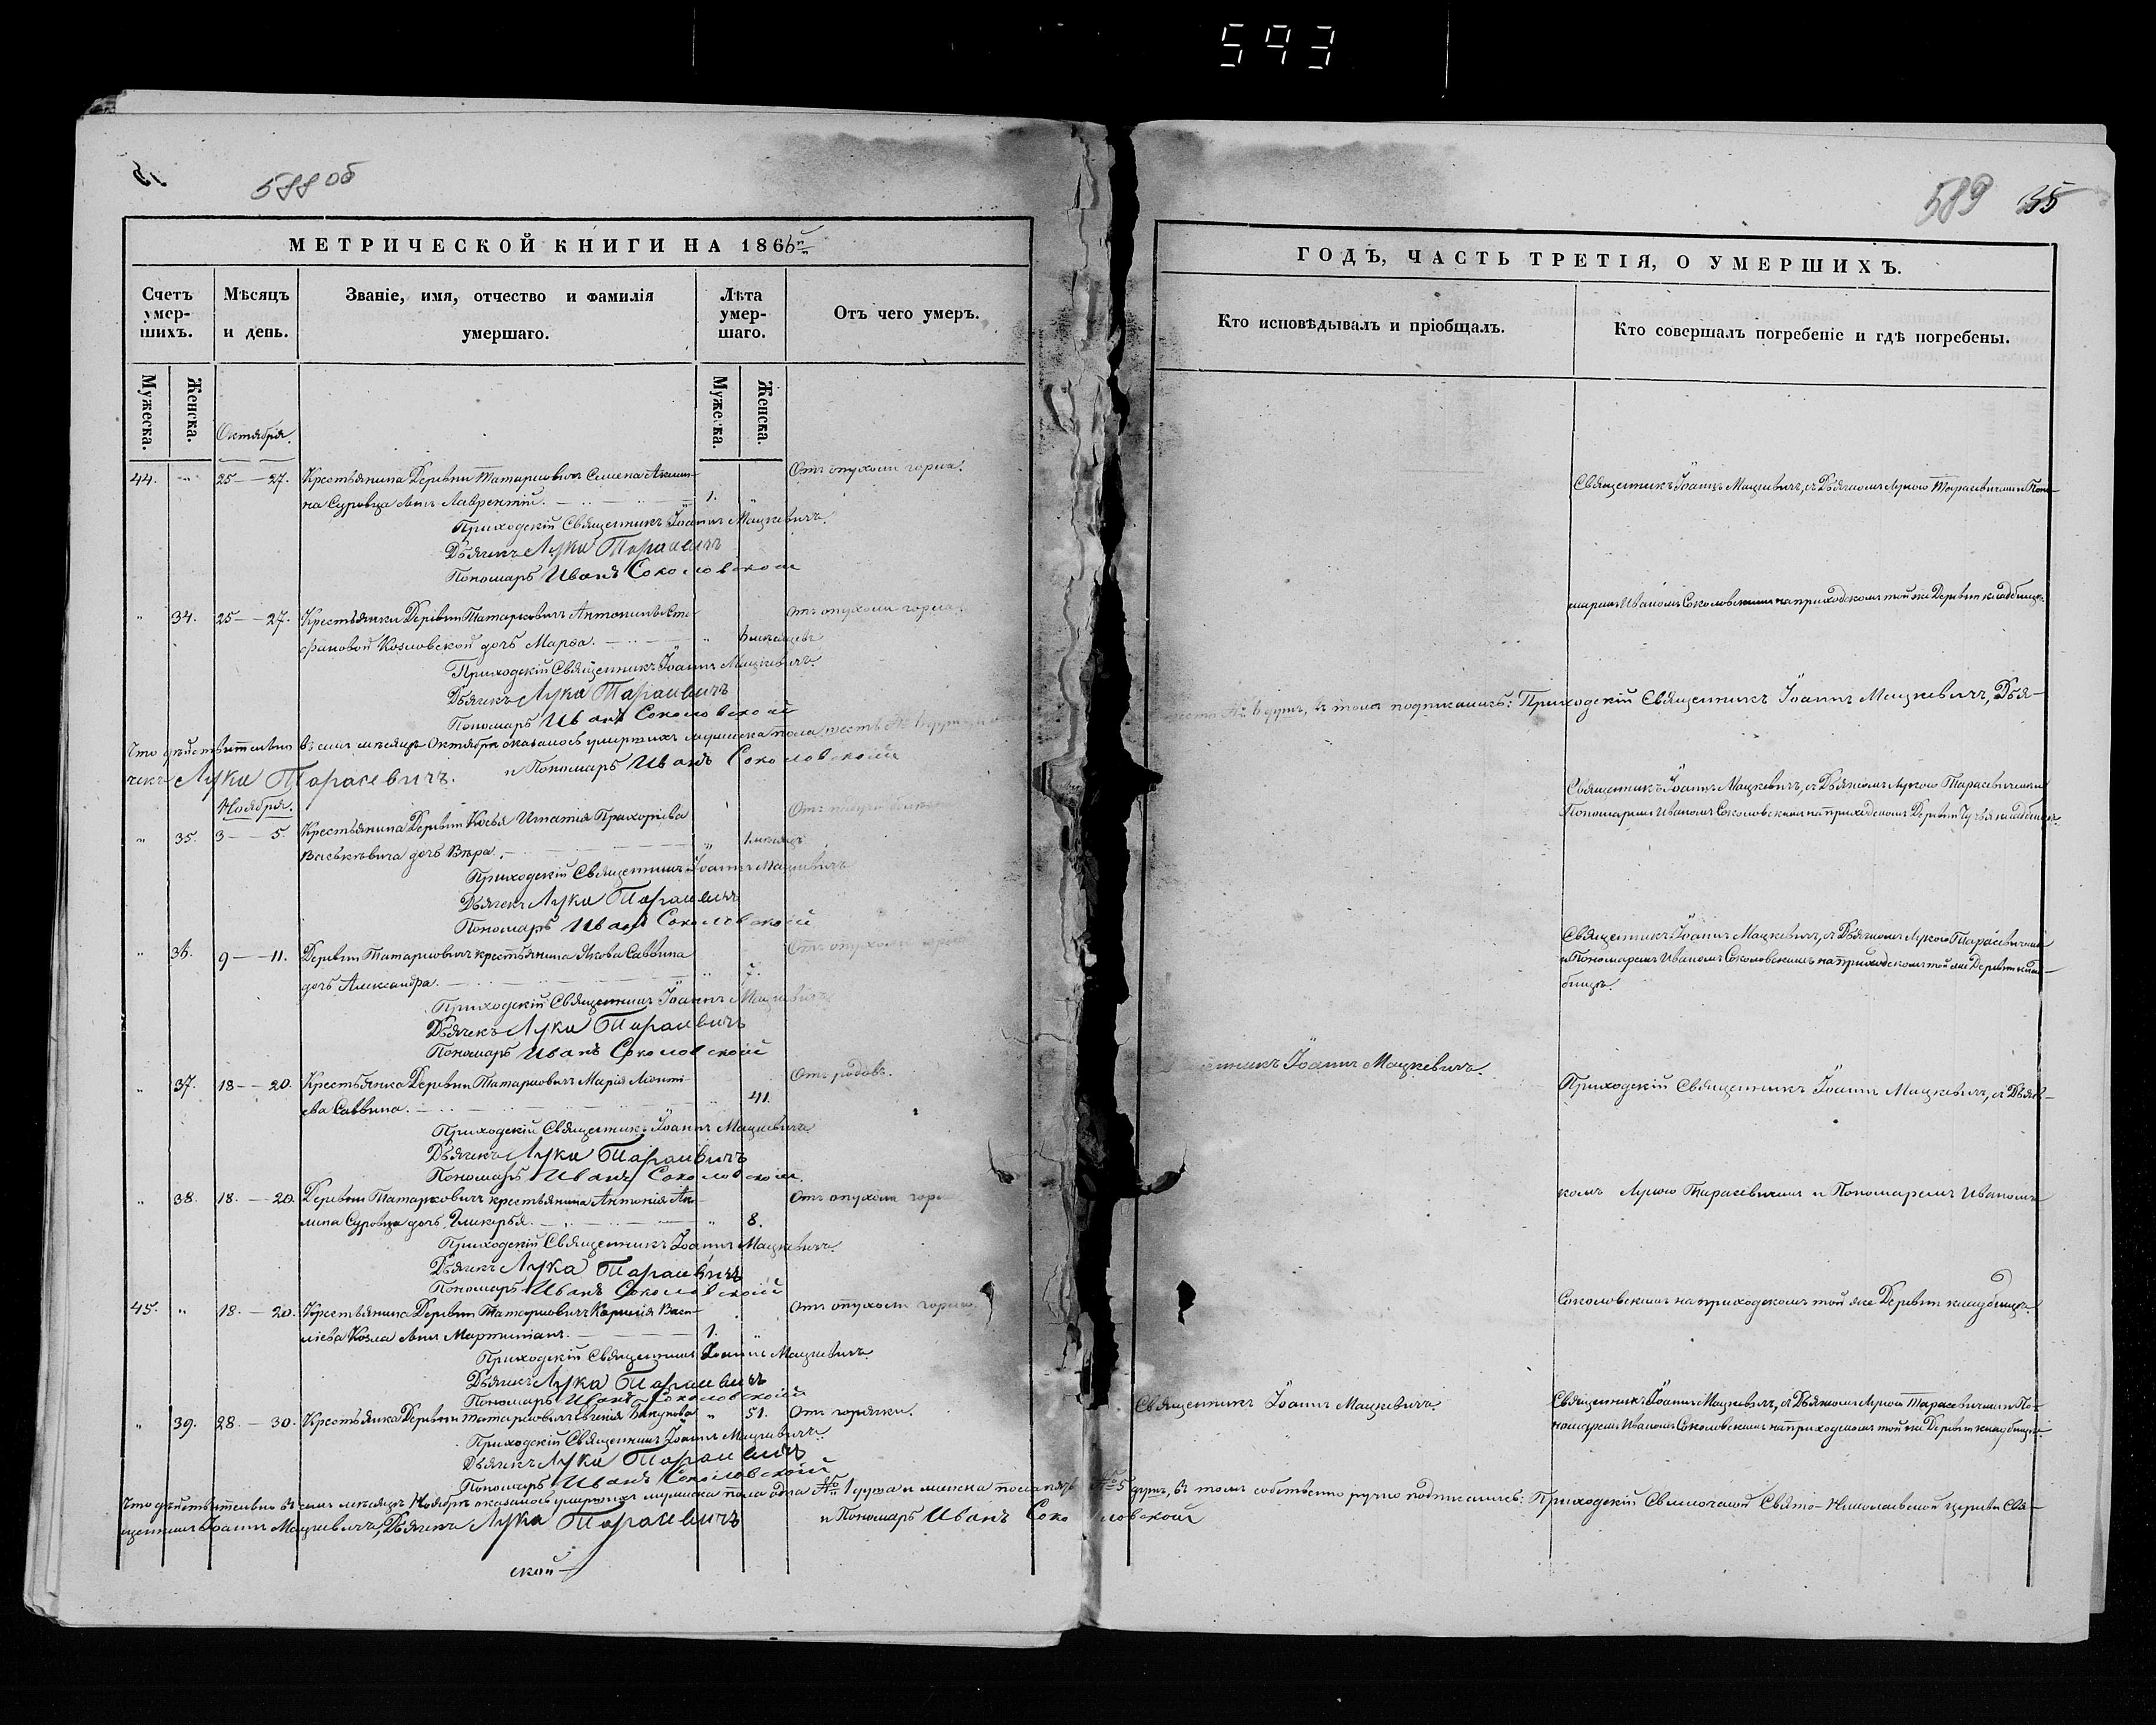 593
588 об
МЕТРИЧЕСКОЙ КНИГИ НА 1866й
Счетъ умер-шихъ.
Мѣсяцъ и день.
Званіе, имя, отчество и фамилія умершаго.
Лѣта умер-шаго.
Отъ чего умеръ.
Мужеска.
Женска.
Мужеска.
Женска.
Октября.
44. „ 25 — 27. Крестьянина Деревни Татарковичъ Семена Акили- Отъ опухоли горла.
на Суровца сынъ Лаврентій. 1. „
Приходскій Священникъ Іоаннъ Мацкевичъ.
Дьячекъ Лука Тарасевичъ
Пономарь Иванъ Соколовский
„ 34. 25 — 27. Крестьянки Деревни Татарковичъ Антонины Сте- Отъ опухоли горла.
фановой Козловской дочь Марѳа. „ 6 мѣсяцевъ
Приходскій Священникъ Іоаннъ Мацкевичъ.
Дьячекъ Лука Тарасевичъ
Пономарь Иванъ Соколовский
Что дѣйствительно въ семъ мѣсяцѣ Октябрѣ оказалось умершихъ мужеска пола шесть
чекъ Лука Тарасевичъ. и Пономарь Иванъ Соколовский
Ноября.
„ 35. 3 — 5. Крестьянина Деревни Игнатія Прохорова Отъ
дочь Вѣра. „ 1 мѣсяцъ
Приходскій Священникъ Іоаннъ Мацкевичъ
Дьячекъ Лука Тарасевичъ
Пономарь Иванъ Соколовский
„ 36. 9 — 11. Деревни Татарковичъ крестьянина Якова Саввина Отъ опухоли горла
дочь Александра. „ 7.
Приходскій Священникъ Іоаннъ Мацкевичъ
Дьячекъ Лука Тарасевичъ
Пономарь Иванъ Соколовский
„ 37. 18 — 20. Крестьянка Деревни Татарковичъ Марія Леонті- Отъ родовъ.
ева Саввина. „ 41.
Приходскій Священникъ Іоаннъ Мацкевичъ
Дьячекъ Лука Тарасевичъ
Пономарь Иванъ Соколовский
„ 38. 18. — 20. Деревни Татарковичъ крестьянина Антонія Аки- Отъ опухоли горла
лина Суровца дочь Гликерья. „ 8.
Приходскій Священникъ Іоаннъ Мацкевичъ.
Дьячекъ Лука Тарасевичъ
Пономарь Иванъ Соколовский
45. „ 18. — 20. Крестьянина Деревни Татарковичъ Корнилія Васи- Отъ опухоли горла.
ліева Козла сынъ Мартиніанъ. 1. „
Приходскій Священникъ Іоаннъ Мацкевичъ.
Дьячекъ Лука Тарасевичъ
Пономарь Иванъ Соколовский
„ 39. 28. — 30. Крестьянка Деревни Татарковичъ Евгенія „ 51. Отъ горячки.
Приходскій Священникъ Іоаннъ Мацкевичъ.
Дьячекъ Лука Тарасевичъ
Пономарь Иванъ Соколовский
Что дѣйствительно въ семъ мѣсяцѣ Ноябрѣ оказалось умершихъ мужеска пола одна № 1 душа и женска пола пять № 5 душъ, въ томъ собственно ручно подписались: Приходскій Свислочской Свято-Николаевской церкви Свя-
щенникъ Іоаннъ Мацкевичъ, Дьячекъ Лука Тарасевичъ и Пономарь Иванъ Соколовский
ской
589 35
ГОДЪ, ЧАСТЬ ТРЕТІЯ, О УМЕРШИХЪ.
Кто исповѣдывалъ и пріобщалъ.
Кто совершалъ погребеніе и гдѣ погребены.
Священникъ Іоаннъ Мацкевичъ, съ Дьячкомъ Лукою Тарасевичемъ и Поно-
маремъ Иваномъ Соколовскимъ на приходскомъ той же Деревни кладбищѣ.
душъ, въ томъ подписались: Приходскій Священникъ Іоаннъ Мацкевичъ, Дья-
Священникъ Іоаннъ Мацкевичъ, съ Дьячкомъ Лукою Тарасевичемъ и
Пономаремъ Иваномъ Соколовскимъ на приходскомъ Деревни кладбищѣ.
Священникъ Іоаннъ Мацкевичъ, съ Дьячкомъ Лукою Тарасевичемъ
и Пономаремъ Иваномъ Соколовскимъ на приходскомъ той же Деревни клад-
бищѣ.
Священникъ Іоаннъ Мацкевичъ.
Приходскій Священникъ Іоаннъ Мацкевичъ, съ Дьяч-
комъ Лукою Тарасевичемъ и Пономаремъ Иваномъ
Соколовскимъ на приходскомъ той же Деревни кладбищѣ.
Священникъ Іоаннъ Мацкевичъ.
Священникъ Іоаннъ Мацкевичъ, съ Дьячкомъ Лукою Тарасевичемъ и По-
номаремъ Иваномъ Соколовскимъ на приходскомъ той же Деревни кладбищѣ.